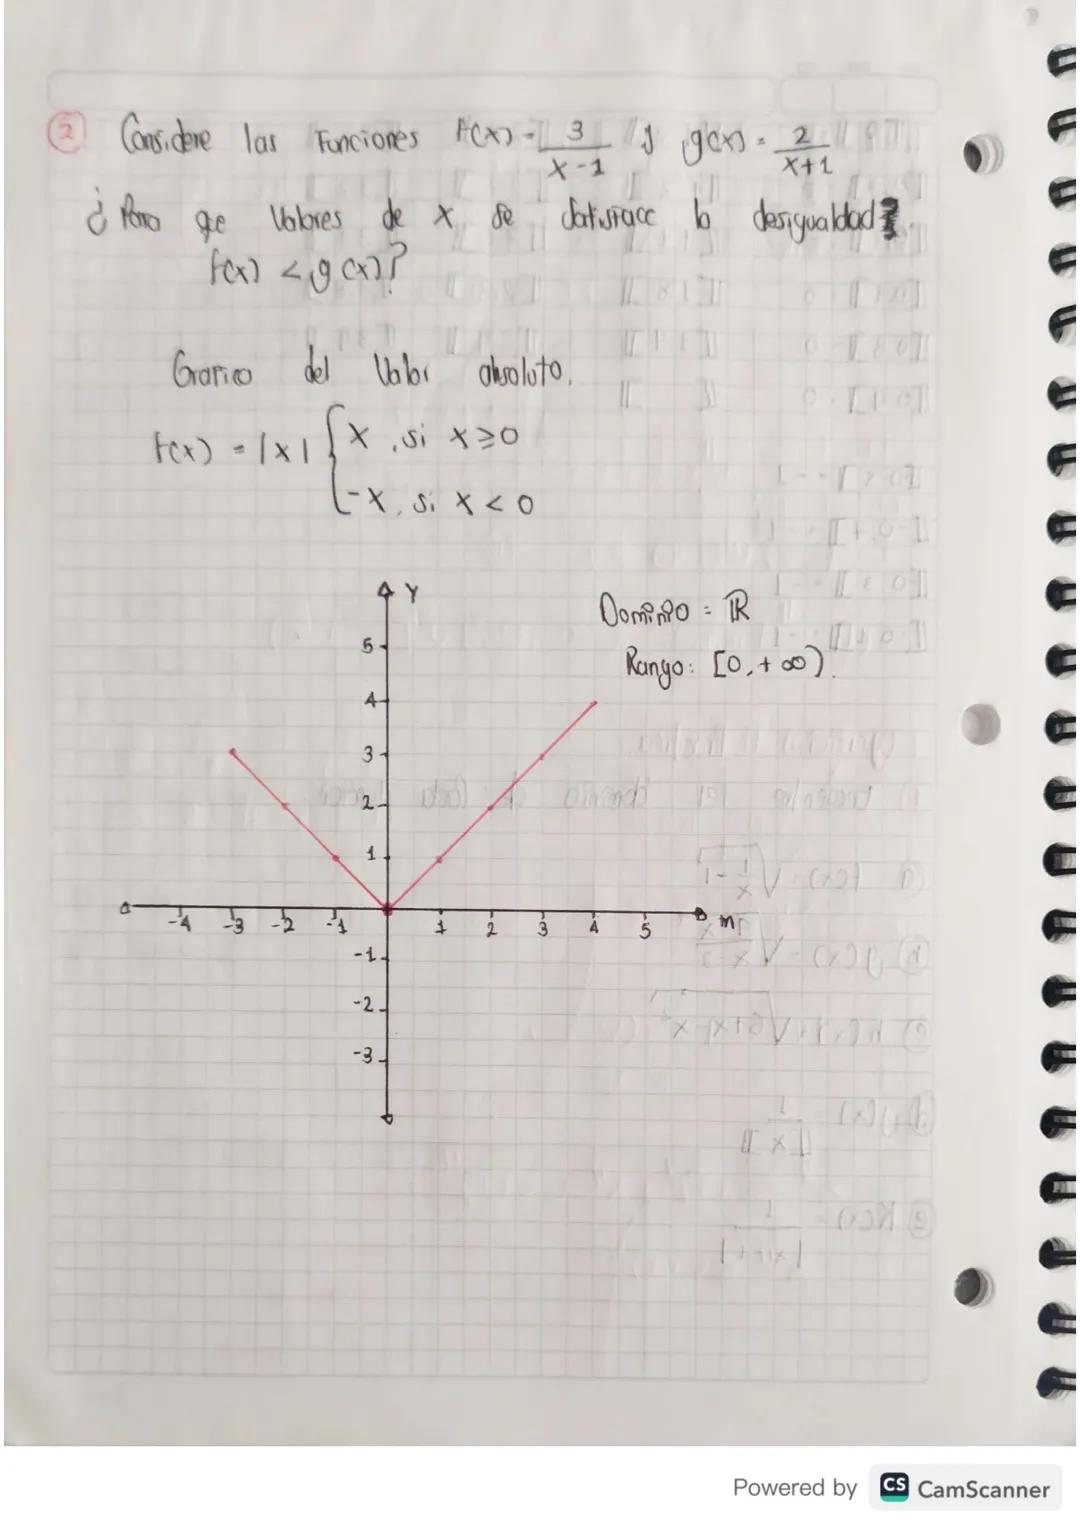 2 Considere las Funciones f(x) = 3/(x-1) y g(x) = 2/(x+1)
¿Para que Valores de x se satisface la desigualdad
f(x) < g(x)?
Grafico del Valor absoluto.
f(x) = |x| { x, si x ≥ 0
-x, si x < 0
Y
Dominio = ℝ
5
Rango: [0, + ∞).
4
3
2
1
-4 -3 -2 -1 1 2 3 4 5
-1
-2
-3
Powered by CS CamScanner